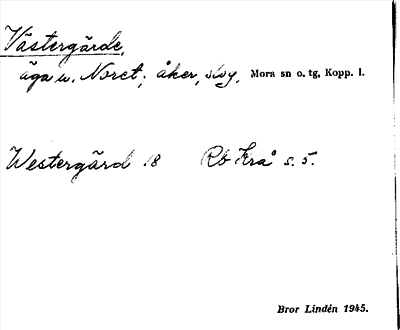 Västergärde,
äga u. Noret; åker, skog. Mora sn o. tg, Kopp. l.
Westergärd 18 Rb Krå s. 5.
Bror Lindén 1945.